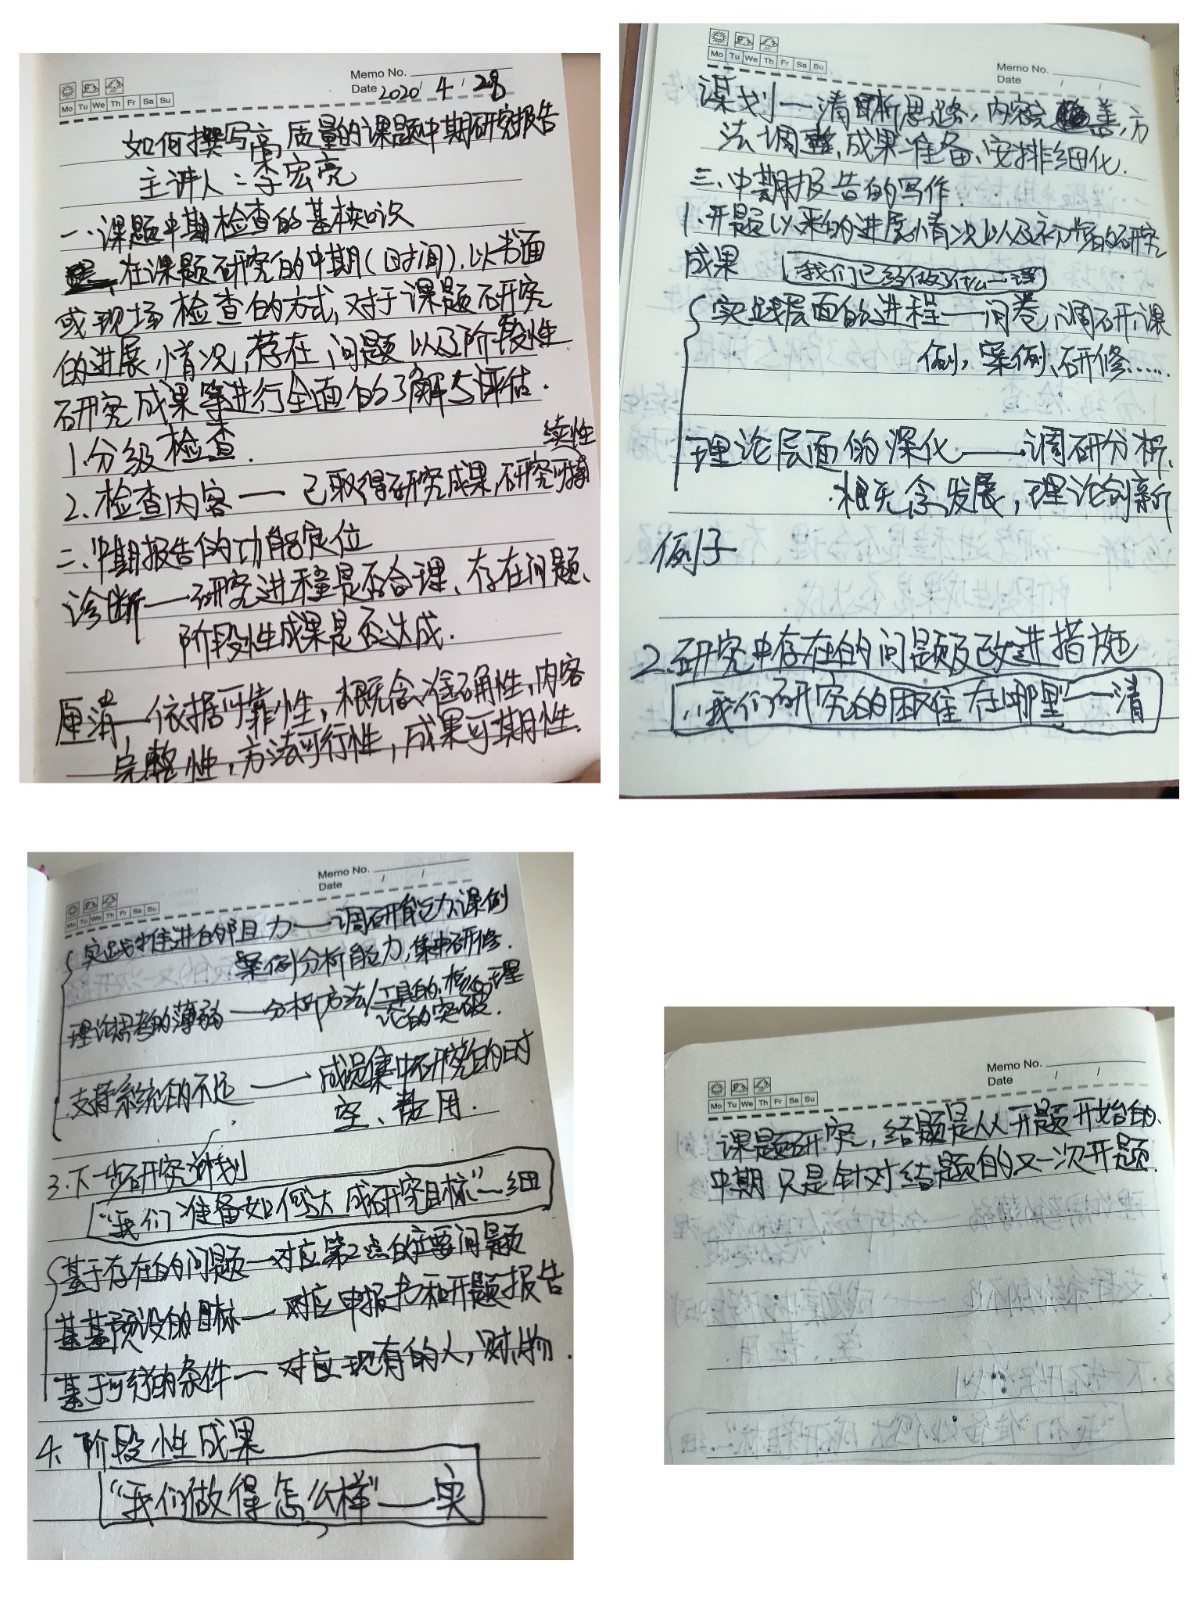 Memo No.
Mo Tu We Th Fr Sa Su
Date 2020 / 4 / 28
如何撰写高质量的课题中期研究报告
主讲人：李宏亮
一、课题中期检查的基本知识
在课题研究的中期(时间)，以书面
或现场检查的方式，对于课题研究
的进展情况，存在问题以及阶段性
研究成果等进行全面的了解与评估.
1.分级检查.
2.检查内容—已取得研究成果，研究可持续性
二、中期报告的功能定位
诊断——研究进程是否合理、存在问题、
阶段性成果是否达成.
厘清—依据可靠性，概念准确性，内容
完整性，方法可行性，成果可期性.
Memo No.
Mo Tu We Th Fr Sa Su
Date / /
谋划—清晰思路，内容完善，方
法调整，成果准备，安排细化.
三、中期报告的写作
1.开题以来的进展情况以及初步的研究
成果 "我们已经做了什么"—理
实践层面的进程——问卷、调研、课
例，案例、研修……
理论层面的深化——调研分析、
概念发展，理论创新
例子
2.研究中存在的问题及改进措施
"我们研究的困难在哪里"—清
Memo No.
Date / /
Mo Tu We Th Fr Sa Su
实践推进的阻力——调研能力、课例
案例分析能力，集中研修.
理论思考的薄弱——分析方法/工具的、核心理
论的突破.
支持系统的不足——成员集中研究的时
空、费用.
3.下一步研究计划
"我们准备如何达成研究目标"—细
基于存在的问题—对应第2点的主要问题
基于预设的目标—对应申报书和开题报告
基于可行的条件—对应现有的人，财，物.
4.阶段性成果
"我们做得怎么样"—实
Memo No.
Date / /
Mo Tu We Th Fr Sa Su
课题研究，结题是从开题开始的.
中期只是针对结题的又一次开题.